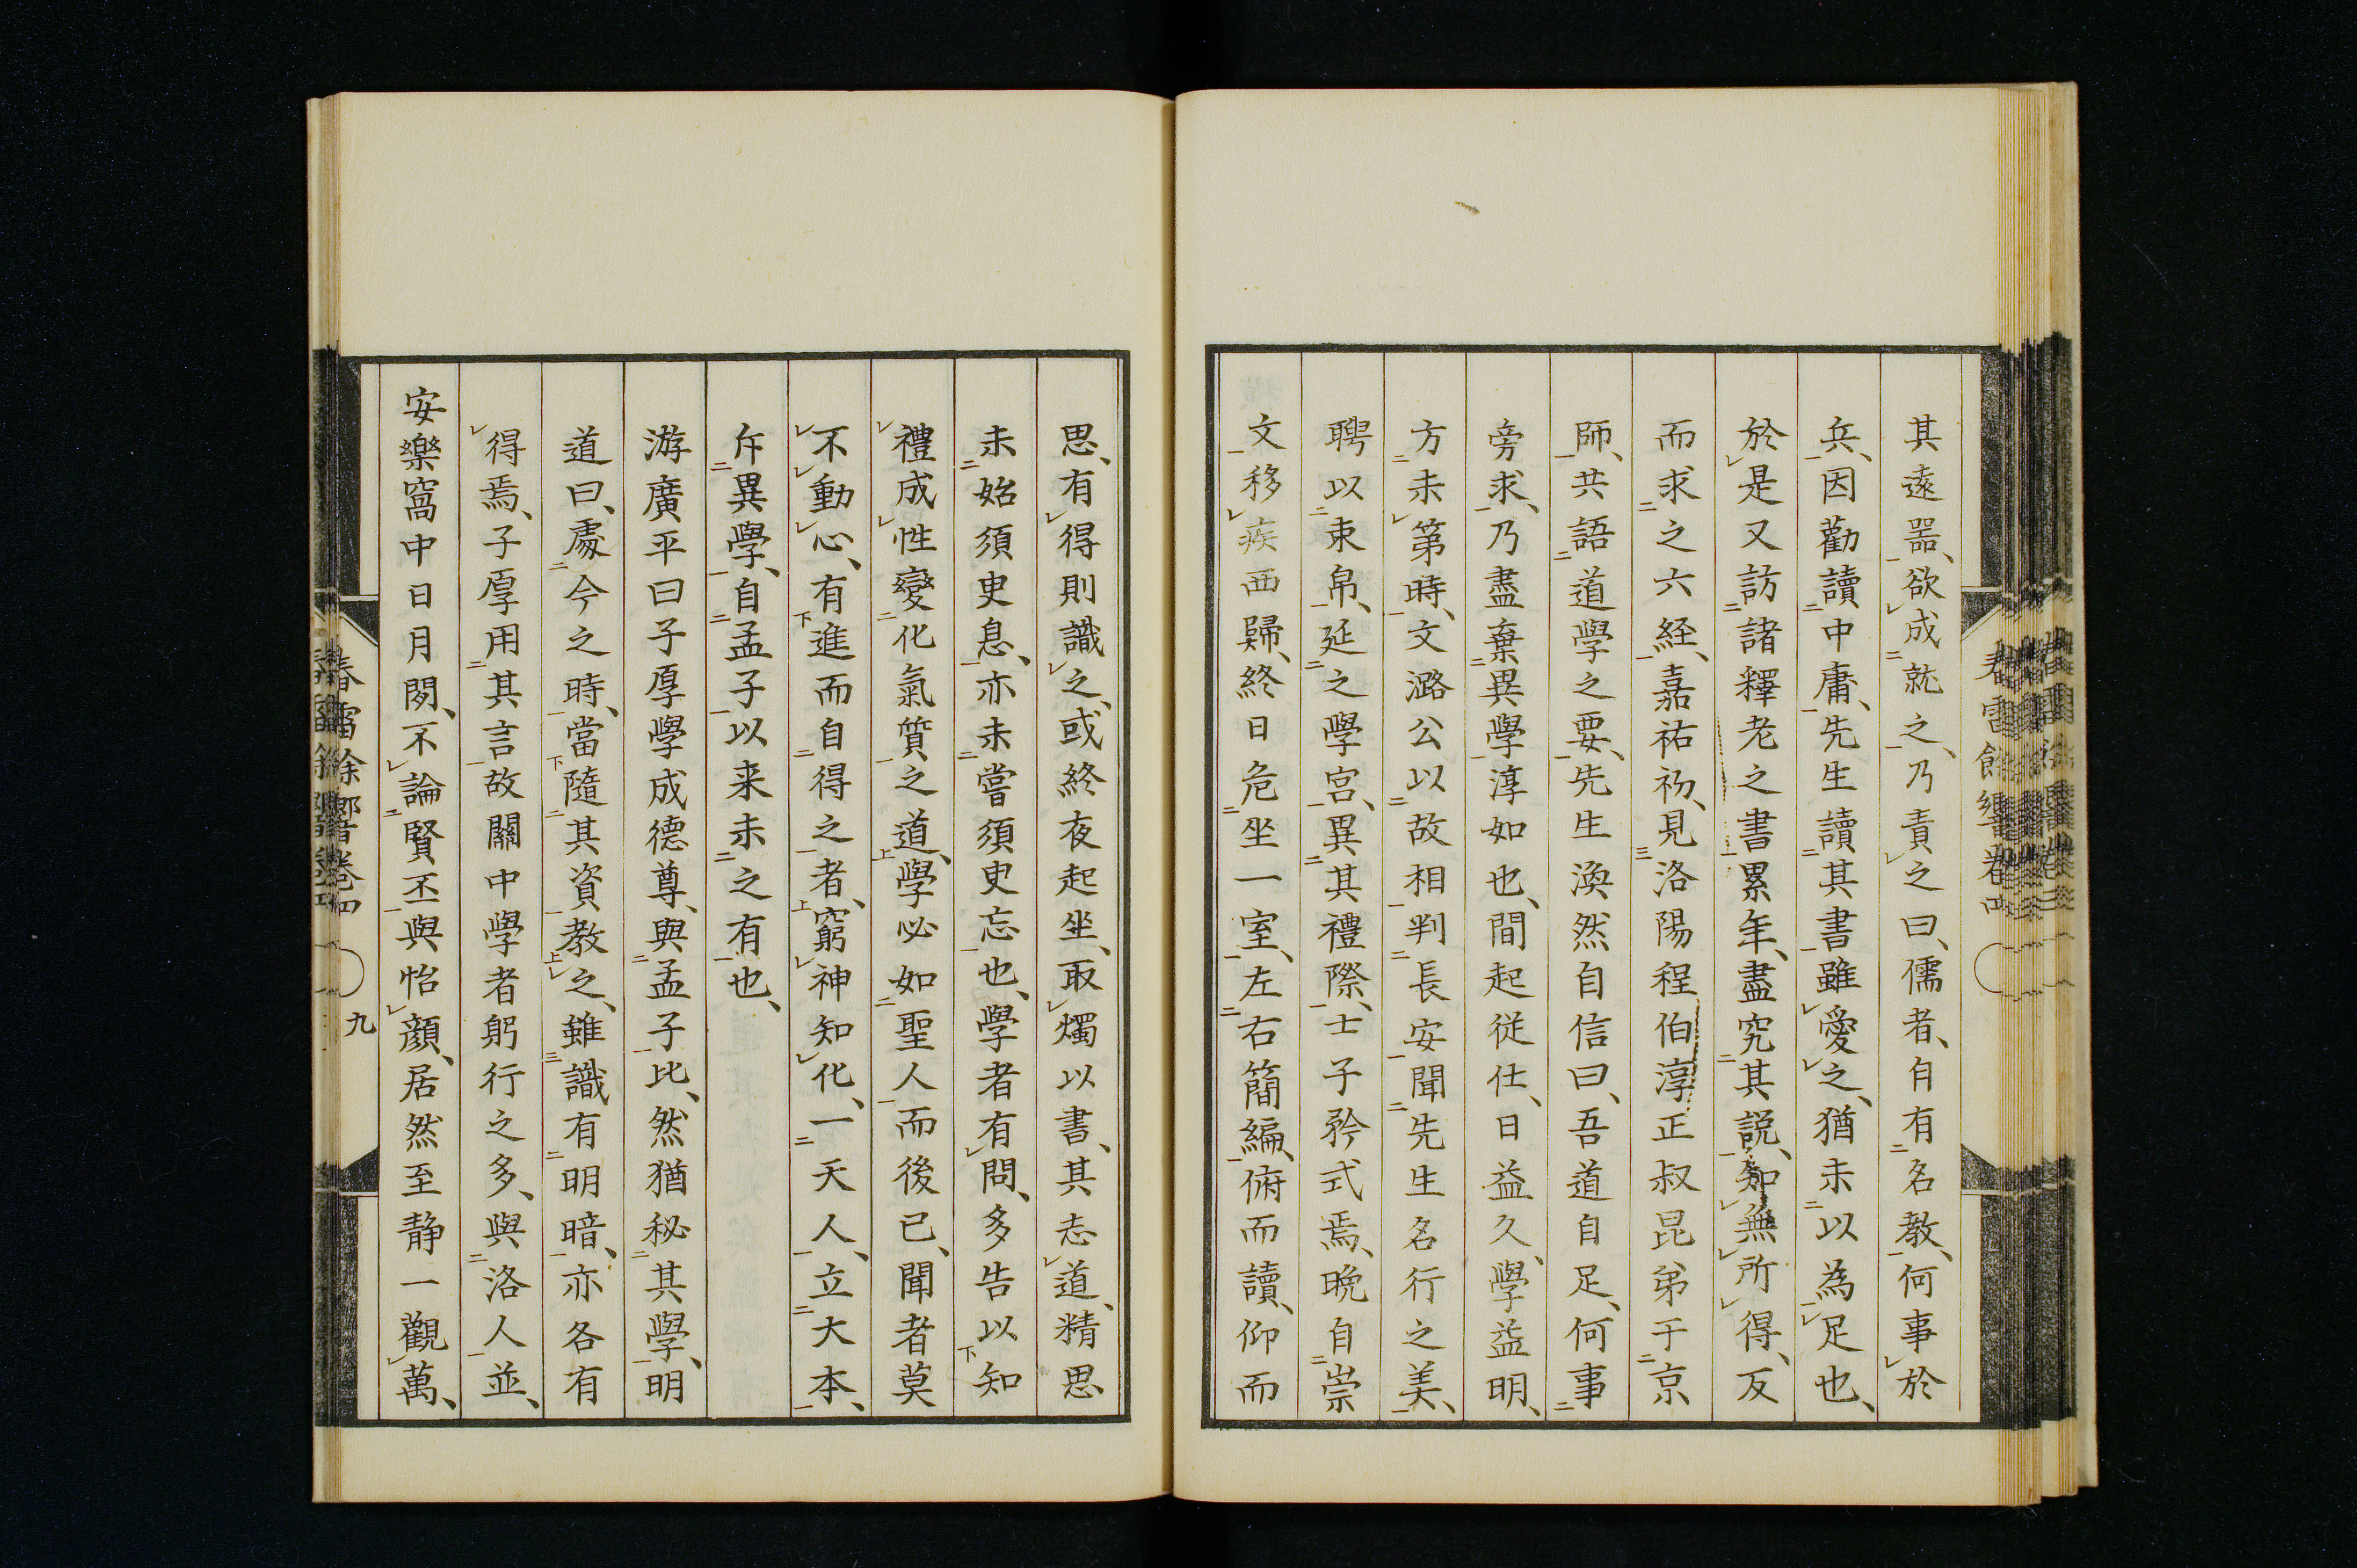 其遠器、欲成就之、乃責之曰、儒者、自有名教、何事於
兵、因勸讀中庸、先生讀其書雖愛之、猶未以為足也、
於是又訪諸釋老之書累年、盡究其説、知無所得、反
而求之六経、嘉祐初、見洛陽程伯淳正叔昆弟于京
師、共語道學之要、先生渙然自信曰、吾道自足、何事
旁求、乃盡棄異學淳如也、間起従仕、日益久、學益明、
方未第時、文潞公以故相判長安聞先生名行之美、
聘以束帛、延之學宮、異其禮際、士子矜式焉、晩自崇
文移疾西歸、終日危坐一室、左右簡編、俯而讀、仰而
思、有得則識之、或終夜起坐、取燭以書、其志道、精思、
未始須臾息、亦未嘗須臾忘也、學者有問、多告以知
禮成性變化氣質之道、學必如聖人而後已、聞者莫
不動心、有進而自得之者、窮神知化、一天人、立大本、
斥異學、自孟子以来未之有也、
游廣平曰子厚學成德尊、與孟子比、然猶秘其學、明
道曰、處今之時、當隨其資教之、雖識有明暗、亦各有
得焉、子厚用其言故關中學者躬行之多、與洛人並、
安樂窩中日月閔、不論賢丕與怡顔、居然至静一觀萬、
春雷餘響卷四
九